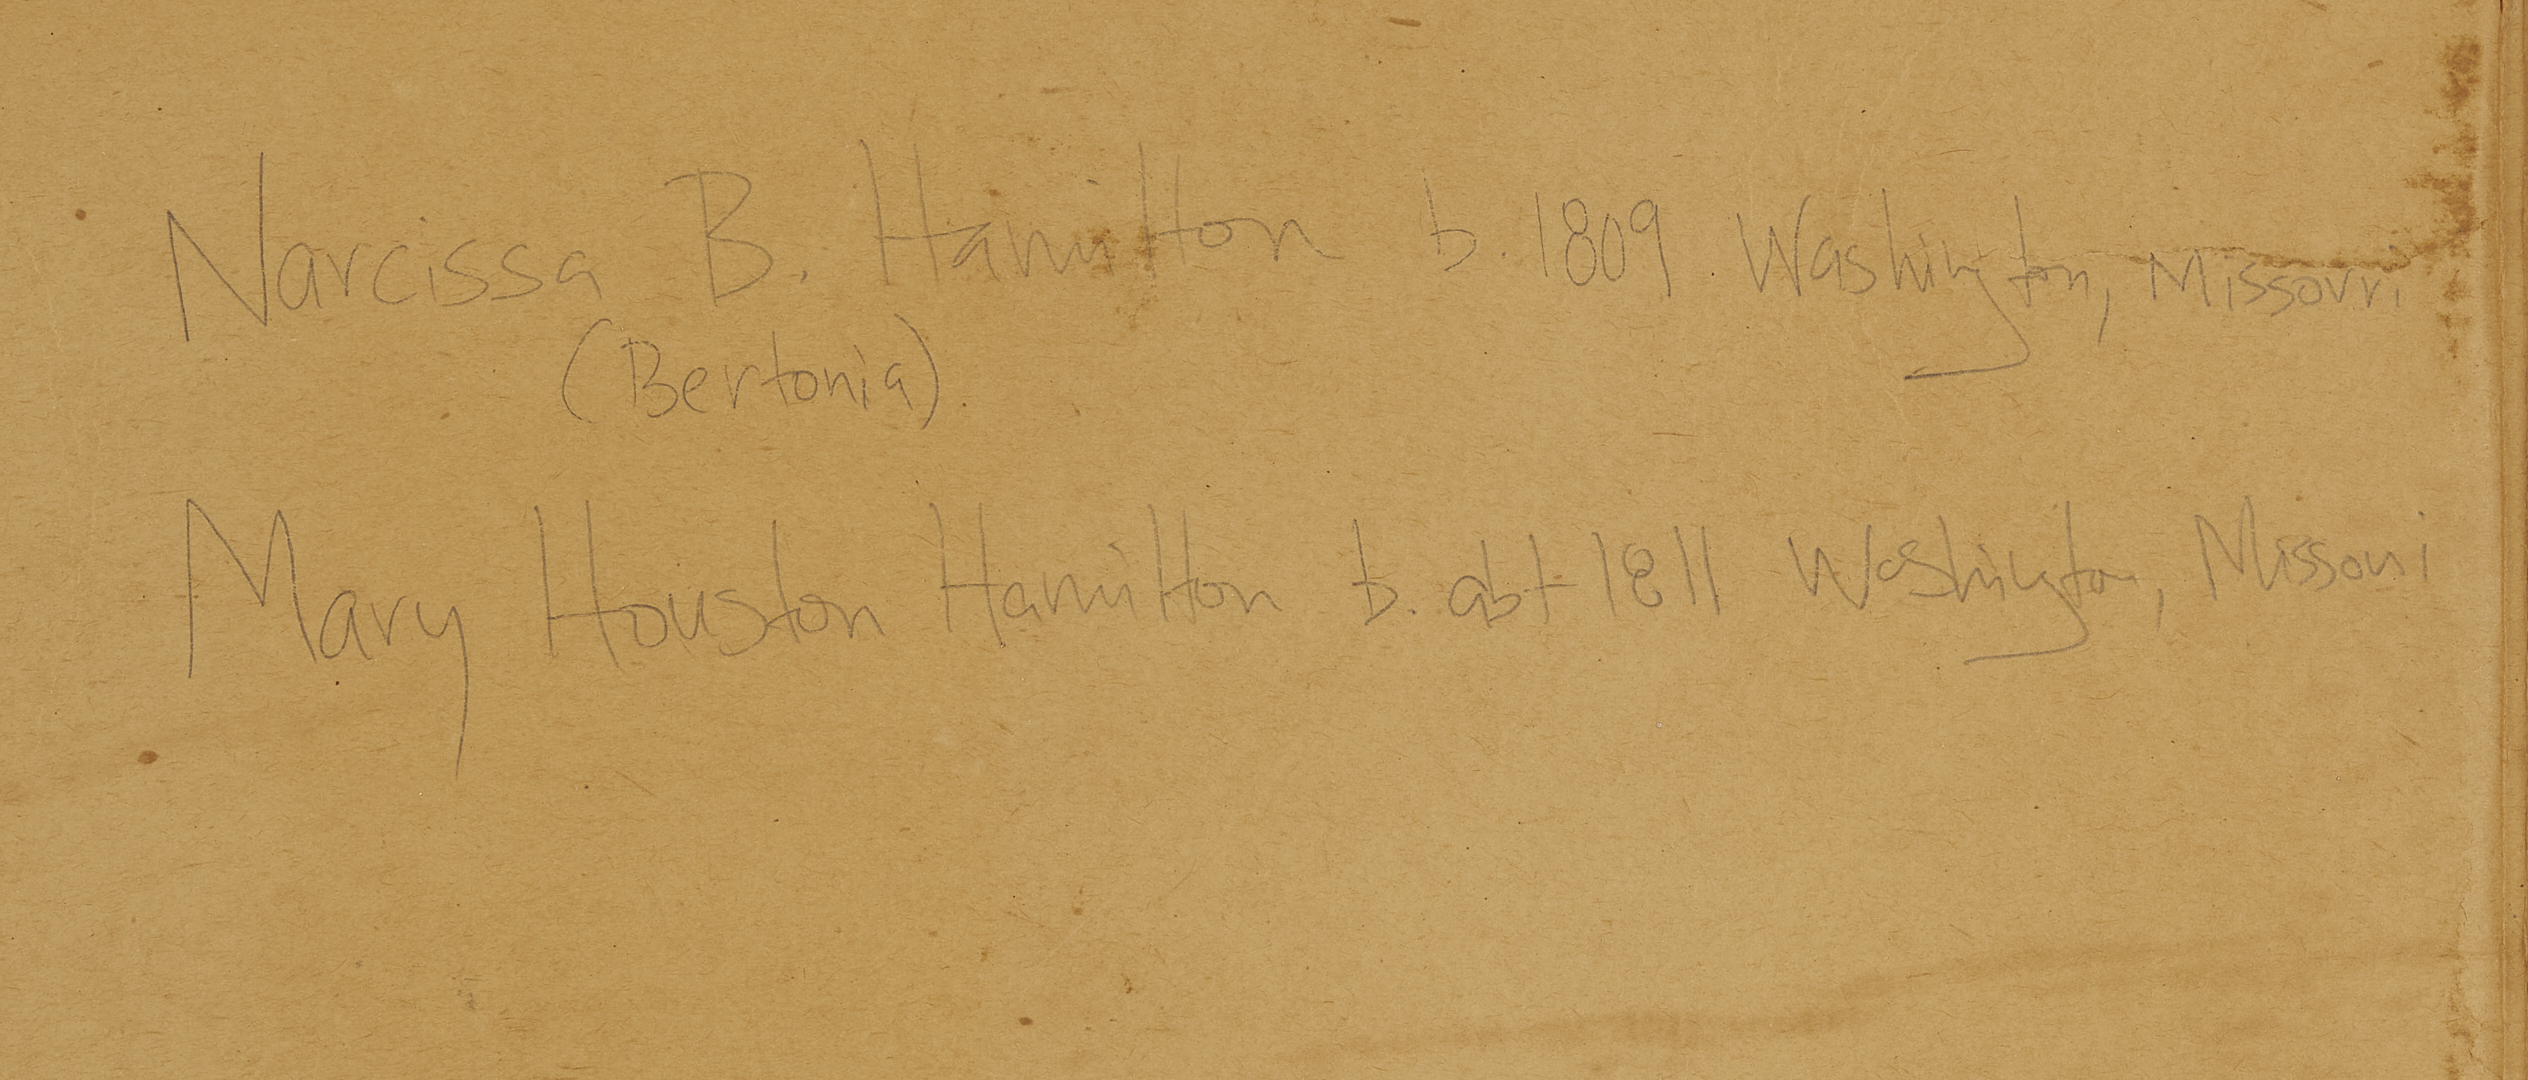 Narcissa B. Hamilton b. 1809 Washington, Missouri
(Bertonia)
Mary Houston Hamilton b. abt 1811 Washington, Missouri